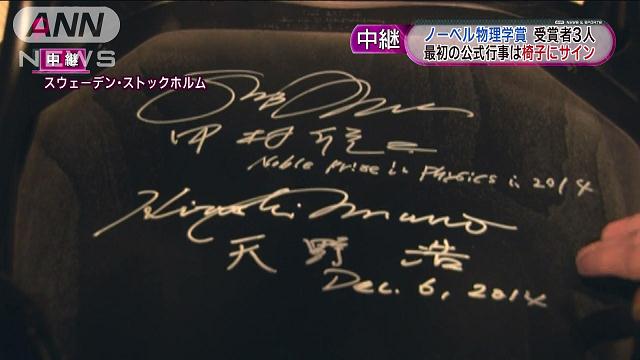 ANN
NEWS
中継
スウェーデン・ストックホルム
中継
ANN NEWS & SPORTS
ノーベル物理学賞 受賞者3人
最初の公式行事は椅子にサイン
中村修二
Noble prize in Physics in 2014
Hiroshi Amano
天野浩
Dec. 6, 2014